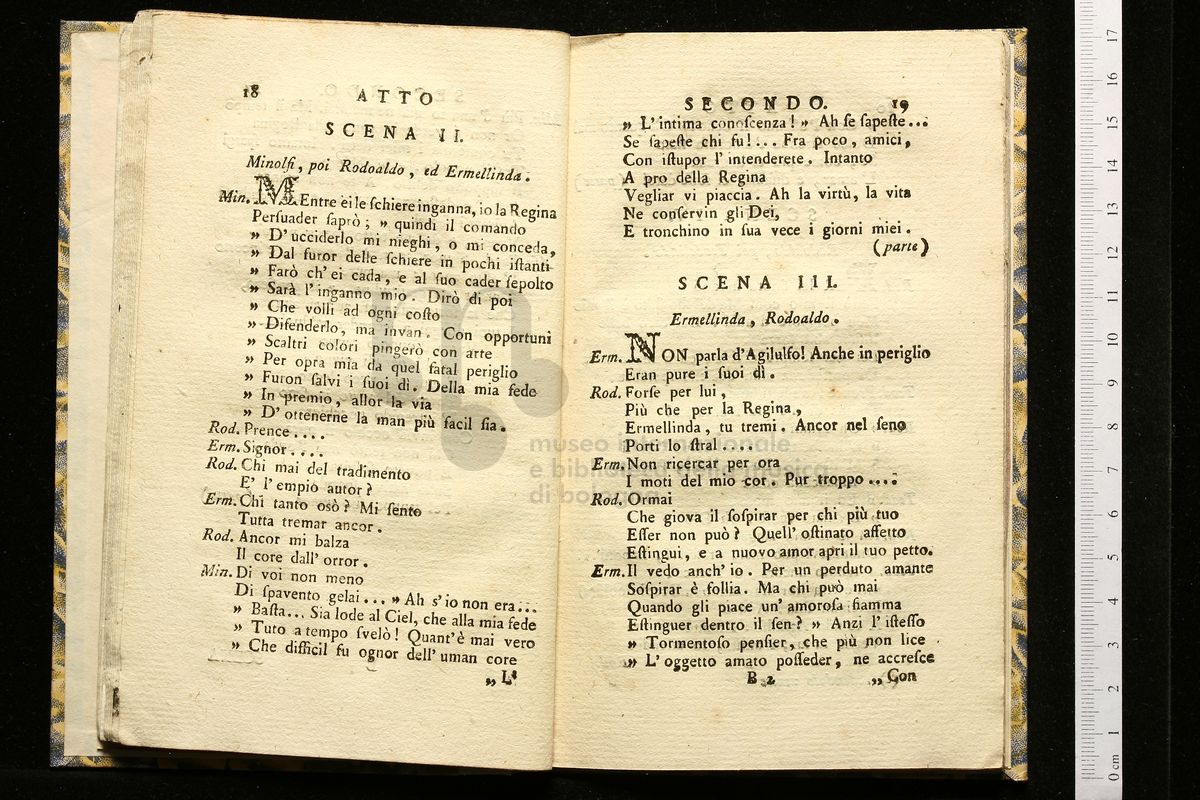 18 ATTO
SCENA II.
Minolfi, poi Rodoaldo, ed Ermellinda.
Min. MEntre ei le ſchiere inganna, io la Regina
Perſuader ſaprò; „ quindi il comando
„ D'ucciderlo mi nieghi, o mi conceda,
„ Dal furor delle ſchiere in pochi iſtanti
„ Farò ch'ei cada, e al ſuo cader ſepolto
„ Sarà l'inganno mio. Dirò di poi
„ Che volli ad ogni coſto
„ Difenderlo, ma invan. Con opportuni
„ Scaltri colori pingerò con arte
„ Per opra mia da quel fatal periglio
„ Furon ſalvi i ſuoi dì. Della mia fede
„ In premio, allor la via
„ D'ottenerne la man più facil ſia.
Rod. Prence....
Erm. Signor....
Rod. Chi mai del tradimento
E' l'empio autor?
Erm. Chi tanto osò? Mi ſento
Tutta tremar ancor.
Rod. Ancor mi balza
Il core dall'orror.
Min. Di voi non meno
Di ſpavento gelai... „ Ah s'io non era...
„ Baſta... Sia lode al Ciel, che alla mia fede
„ Tuto a tempo ſvelò! Quant'è mai vero
„ Che difficil fu ognor dell'uman core
„ L'
SECONDO. 19
„ L'intima conoſcenza! „ Ah ſe ſapeſte...
Se ſapeſte chi fu!... Fra poco, amici,
Con iſtupor l'intenderete. Intanto
A pro della Regina
Vegliar vi piaccia. Ah la virtù, la vita
Ne conſervin gli Dei,
E tronchino in ſua vece i giorni miei.
(parte)
SCENA III.
Ermellinda, Rodoaldo.
Erm. NON parla d'Agilulfo! Anche in periglio
Eran pure i ſuoi dì.
Rod. Forſe per lui,
Più che per la Regina,
Ermellinda, tu tremi. Ancor nel ſeno
Porti lo ſtral....
Erm. Non ricercar per ora
I moti del mio cor. Pur troppo....
Rod. Ormai
Che giova il ſoſpirar per chi più tuo
Eſſer non può? Quell'oſtinato affetto
Eſtingui, e a nuovo amor apri il tuo petto.
Erm. Il vedo anch'io. Per un perduto amante
Soſpirar è follia. Ma chi può mai
Quando gli piace un'amoroſa fiamma
Eſtinguer dentro il ſen? „ Anzi l'iſteſſo
„ Tormentoſo penſier, che più non lice
„ L'oggetto amato poſſeder, ne accreſce
B 2 „ Con
museo internazionale
e biblioteca della musica
di bologna
0 cm 1 2 3 4 5 6 7 8 9 10 11 12 13 14 15 16 17